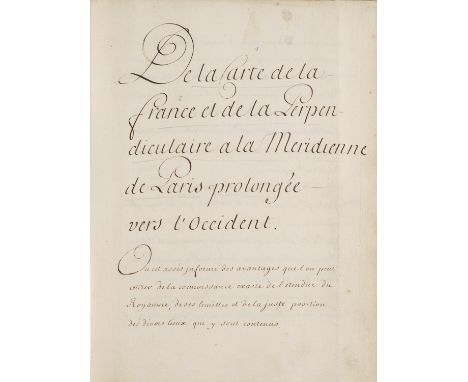 De la Carte de la
france et de la Perpen-
diculaire a la Meridienne
de Paris prolongée
vers l'Occident.
On est assés informé des avantages que l'on peut
retirer de la connoissance exacte de l'etendue du
Royaume, de ses limites et de la juste position
des divers lieux que y sont contenus